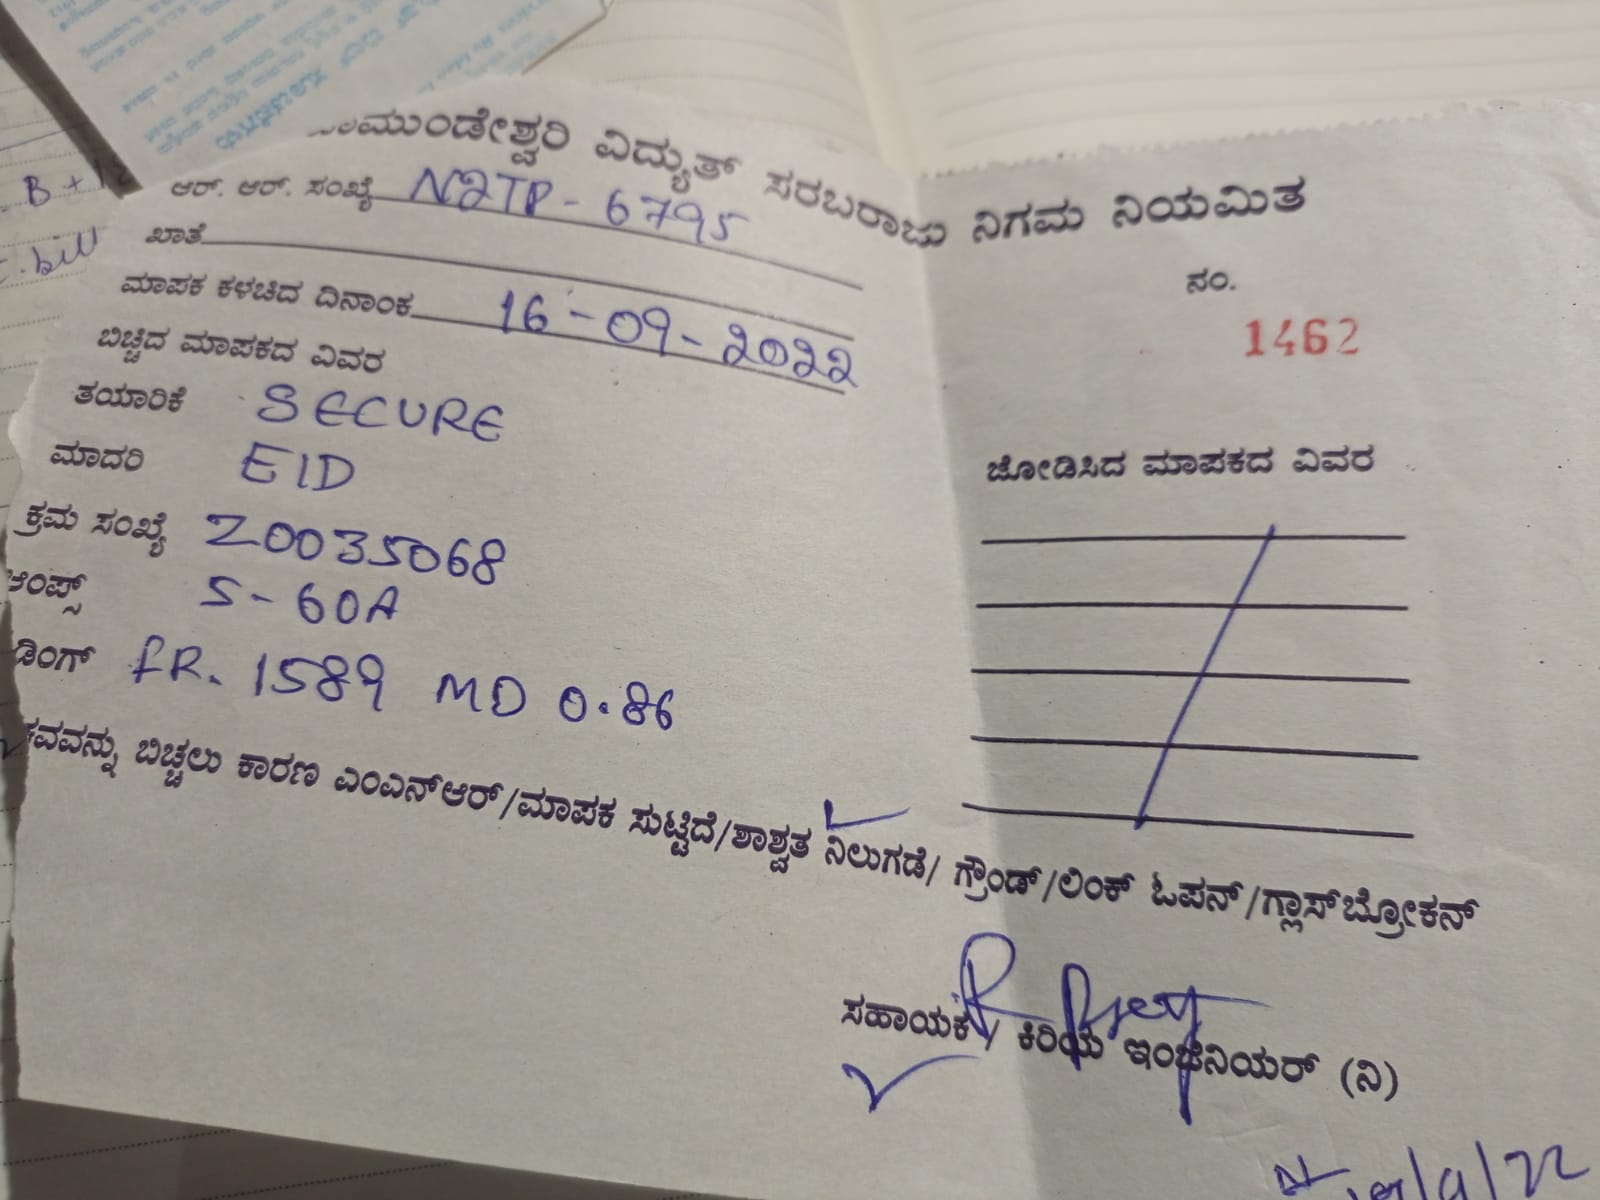 ಚಾಮುಂಡೇಶ್ವರಿ ವಿದ್ಯುತ್ ಸರಬರಾಜು ನಿಗಮ ನಿಯಮಿತ
ನಂ.
1462
ಆರ್. ಆರ್. ಸಂಖ್ಯೆ N2TP - 6795
ಖಾತೆ
ಮಾಪಕ ಕಳಚಿದ ದಿನಾಂಕ 16-09-2022
ಬಿಚ್ಚಿದ ಮಾಪಕದ ವಿವರ
ತಯಾರಿಕೆ SECURE
ಮಾದರಿ EID
ಕ್ರಮ ಸಂಖ್ಯೆ Z0035068
ಆಂಪ್ಸ್ 5-60A
ಡಿಂಗ್ FR. 1589 MD 0.86
ಜೋಡಿಸಿದ ಮಾಪಕದ ವಿವರ
ಬಿಚ್ಚಲು ಕಾರಣ ಎಂಎನ್ಆರ್/ಮಾಪಕ ಸುಟ್ಟಿದೆ/ಶಾಶ್ವತ ನಿಲುಗಡೆ/ ಗ್ರೌಂಡ್/ಲಿಂಕ್ ಓಪನ್/ಗ್ಲಾಸ್‌ಬ್ರೋಕನ್
ಸಹಾಯಕ / ಕಿರಿಯ ಇಂಜಿನಿಯರ್ (ನಿ)
B +
bill